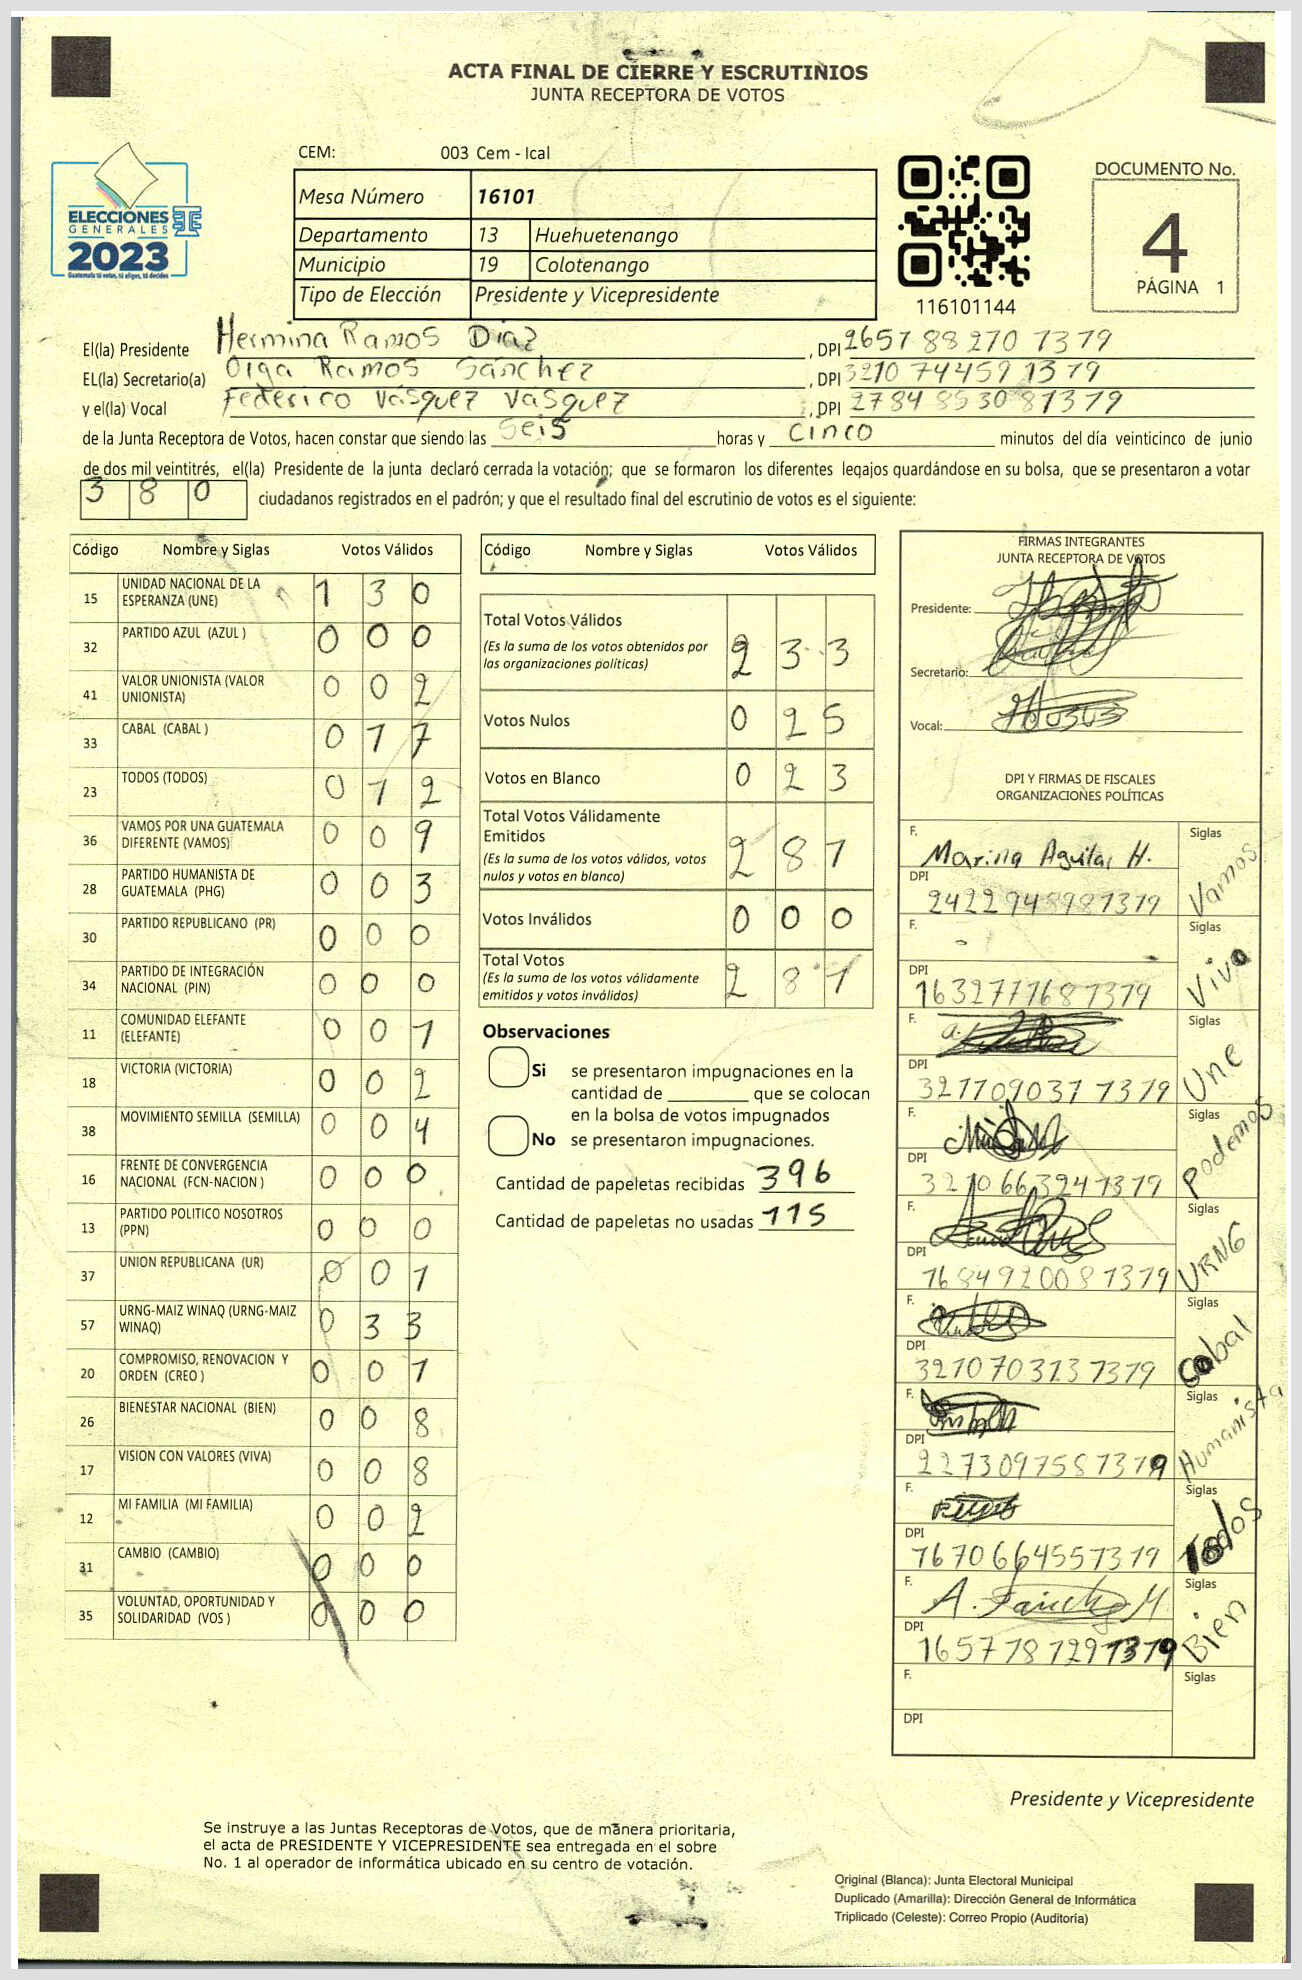 ACTA FINAL DE CIERRE Y ESCRUTINIOS
JUNTA RECEPTORA DE VOTOS
CEM: 003 Cem - Ical
ELECCIONES
GENERALES
2023
Guatemala tú votas, tú eliges, tú decides
Mesa Número 16101
Departamento 13 Huehuetenango
Municipio 19 Colotenango
Tipo de Elección Presidente y Vicepresidente
116101144
DOCUMENTO No.
4
PÁGINA 1
El(la) Presidente Hermina Ramos Diaz, DPI 2657 88270 1379
EL(la) Secretario(a) Olga Ramos Sánchez, DPI 3210 74459 1379
y el(la) Vocal Federico Vásquez Vásquez, DPI 2784 85308 1379
de la Junta Receptora de Votos, hacen constar que siendo las Seis horas y Cinco minutos del día veinticinco de junio
de dos mil veintitrés, el(la) Presidente de la junta declaró cerrada la votación; que se formaron los diferentes legajos guardándose en su bolsa, que se presentaron a votar
3 8 0 ciudadanos registrados en el padrón; y que el resultado final del escrutinio de votos es el siguiente:
Código Nombre y Siglas Votos Válidos
15 UNIDAD NACIONAL DE LA ESPERANZA (UNE) 1 3 0
32 PARTIDO AZUL (AZUL ) 0 0 0
41 VALOR UNIONISTA (VALOR UNIONISTA) 0 0 2
33 CABAL (CABAL ) 0 1 7
23 TODOS (TODOS) 0 1 2
36 VAMOS POR UNA GUATEMALA DIFERENTE (VAMOS) 0 0 9
28 PARTIDO HUMANISTA DE GUATEMALA (PHG) 0 0 3
30 PARTIDO REPUBLICANO (PR) 0 0 0
34 PARTIDO DE INTEGRACIÓN NACIONAL (PIN) 0 0 0
11 COMUNIDAD ELEFANTE (ELEFANTE) 0 0 1
18 VICTORIA (VICTORIA) 0 0 2
38 MOVIMIENTO SEMILLA (SEMILLA) 0 0 4
16 FRENTE DE CONVERGENCIA NACIONAL (FCN-NACION ) 0 0 0
13 PARTIDO POLITICO NOSOTROS (PPN) 0 0 0
37 UNION REPUBLICANA (UR) 0 0 1
57 URNG-MAIZ WINAQ (URNG-MAIZ WINAQ) 0 3 3
20 COMPROMISO, RENOVACION Y ORDEN (CREO ) 0 0 1
26 BIENESTAR NACIONAL (BIEN) 0 0 8
17 VISION CON VALORES (VIVA) 0 0 8
12 MI FAMILIA (MI FAMILIA) 0 0 2
31 CAMBIO (CAMBIO) 0 0 0
35 VOLUNTAD, OPORTUNIDAD Y SOLIDARIDAD (VOS ) 0 0 0
Código Nombre y Siglas Votos Válidos
Total Votos Válidos
(Es la suma de los votos obtenidos por las organizaciones políticas) 2 3 3
Votos Nulos 0 2 5
Votos en Blanco 0 2 3
Total Votos Válidamente Emitidos
(Es la suma de los votos válidos, votos nulos y votos en blanco) 2 8 1
Votos Inválidos 0 0 0
Total Votos
(Es la suma de los votos válidamente emitidos y votos inválidos) 2 8 1
Observaciones
Si se presentaron impugnaciones en la
cantidad de ________ que se colocan
en la bolsa de votos impugnados
No se presentaron impugnaciones.
Cantidad de papeletas recibidas 396
Cantidad de papeletas no usadas 115
FIRMAS INTEGRANTES
JUNTA RECEPTORA DE VOTOS
Presidente:
Secretario:
Vocal:
DPI Y FIRMAS DE FISCALES
ORGANIZACIONES POLÍTICAS
F. Marina Aguilar H. Siglas Vamos
DPI 2422948981379
F. Siglas Viva
DPI 1632777681379
F. Siglas Une
DPI 3211090371379
F. Siglas Podemos
DPI 3210663241379
F. Siglas URNG
DPI 1684920081379
F. Siglas Cabal
DPI 3210703131379
F. Siglas Humanista
DPI 2273097581379
F. Siglas Todos
DPI 1670664551379
F. A. Sánchez M Siglas Bien
DPI 1657787291379
F. Siglas
DPI
Presidente y Vicepresidente
Se instruye a las Juntas Receptoras de Votos, que de manera prioritaria,
el acta de PRESIDENTE Y VICEPRESIDENTE sea entregada en el sobre
No. 1 al operador de informática ubicado en su centro de votación.
Original (Blanca): Junta Electoral Municipal
Duplicado (Amarilla): Dirección General de Informática
Triplicado (Celeste): Correo Propio (Auditoría)